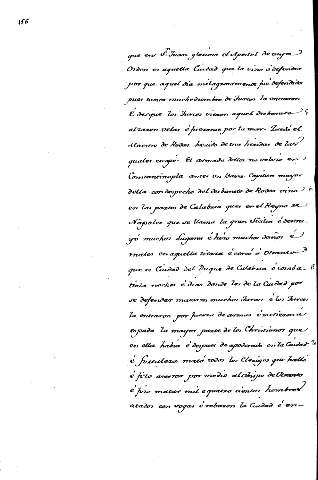 156
que era Sn. Juan glorioso el Apostol de cuya
Orden es aquella Ciudad que la vino á defender
por que aquel dia milagrosamente fué defendida
pues tanta muchedumbre de Turcos la entraron
E desque los Turcos vieron aquel desbarato
alzaron velas é fueronse por la mar. Quedó el
Maestre de Rodas herido de tres heridas de las
quales escapó. El armada della no volvio en
Constantinopla antes un Capitan mayor
della con despecho del desbarato de Rodas vino
en las partes de Calabria que es en el Reyno de
Nápoles que se llama la gran Sicilia é destru
yó muchos lugares é hizo muchos daños é
males en aquella tierra é cercó á Otranto
que es Ciudad del Duque de Calabria é comba
tiola noches é dias donde los de la Ciudad por
se defender mataron muchos Turcos é los Turcos
la entraron por fuerza de armas é metieron á
espada la mayor parte de los Christianos que
en ella habia é despues de apoderado en la Ciudad
é fortaleza mató todos los Clerigos que halló
é fizo aserrar por medio al Obispo de Otranto
é fizo matar mil é quatro cientos hombres
atados con sogas é robaron la Ciudad é en-